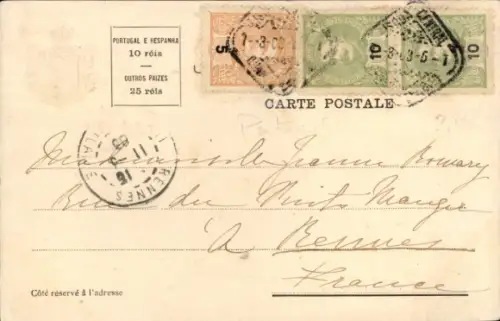 PORTUGAL E HESPANHA
10 réis
OUTROS PAIZES
25 réis
5
10
10
CARTE POSTALE
RENNES
16
11
Mademoiselle Jeanne
Rue du Puits Mauger
à Rennes
France
Côté réservé à l'adresse